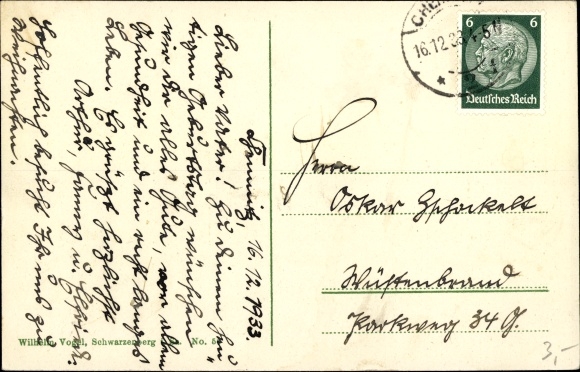 Chemnitz, 16.12.1933.
Lieber Vater! Zu Deinem heu-
tigen Geburtstag wünschen
wir Dir alles Gute, vor allem
Gesundheit und ein recht langes
Leben. Es grüßt herzlichst
Arthur, Fanny u.
Hoffentlich besucht Ihr uns zu
Weihnachten.
CHEM
16.12.33
6 6
Deutsches Reich
Herrn
Oskar Zschockelt
Wüstenbrand
Parkweg 34 G.
Wilhelm Vogel, Schwarzenberg
No. 5
3,-